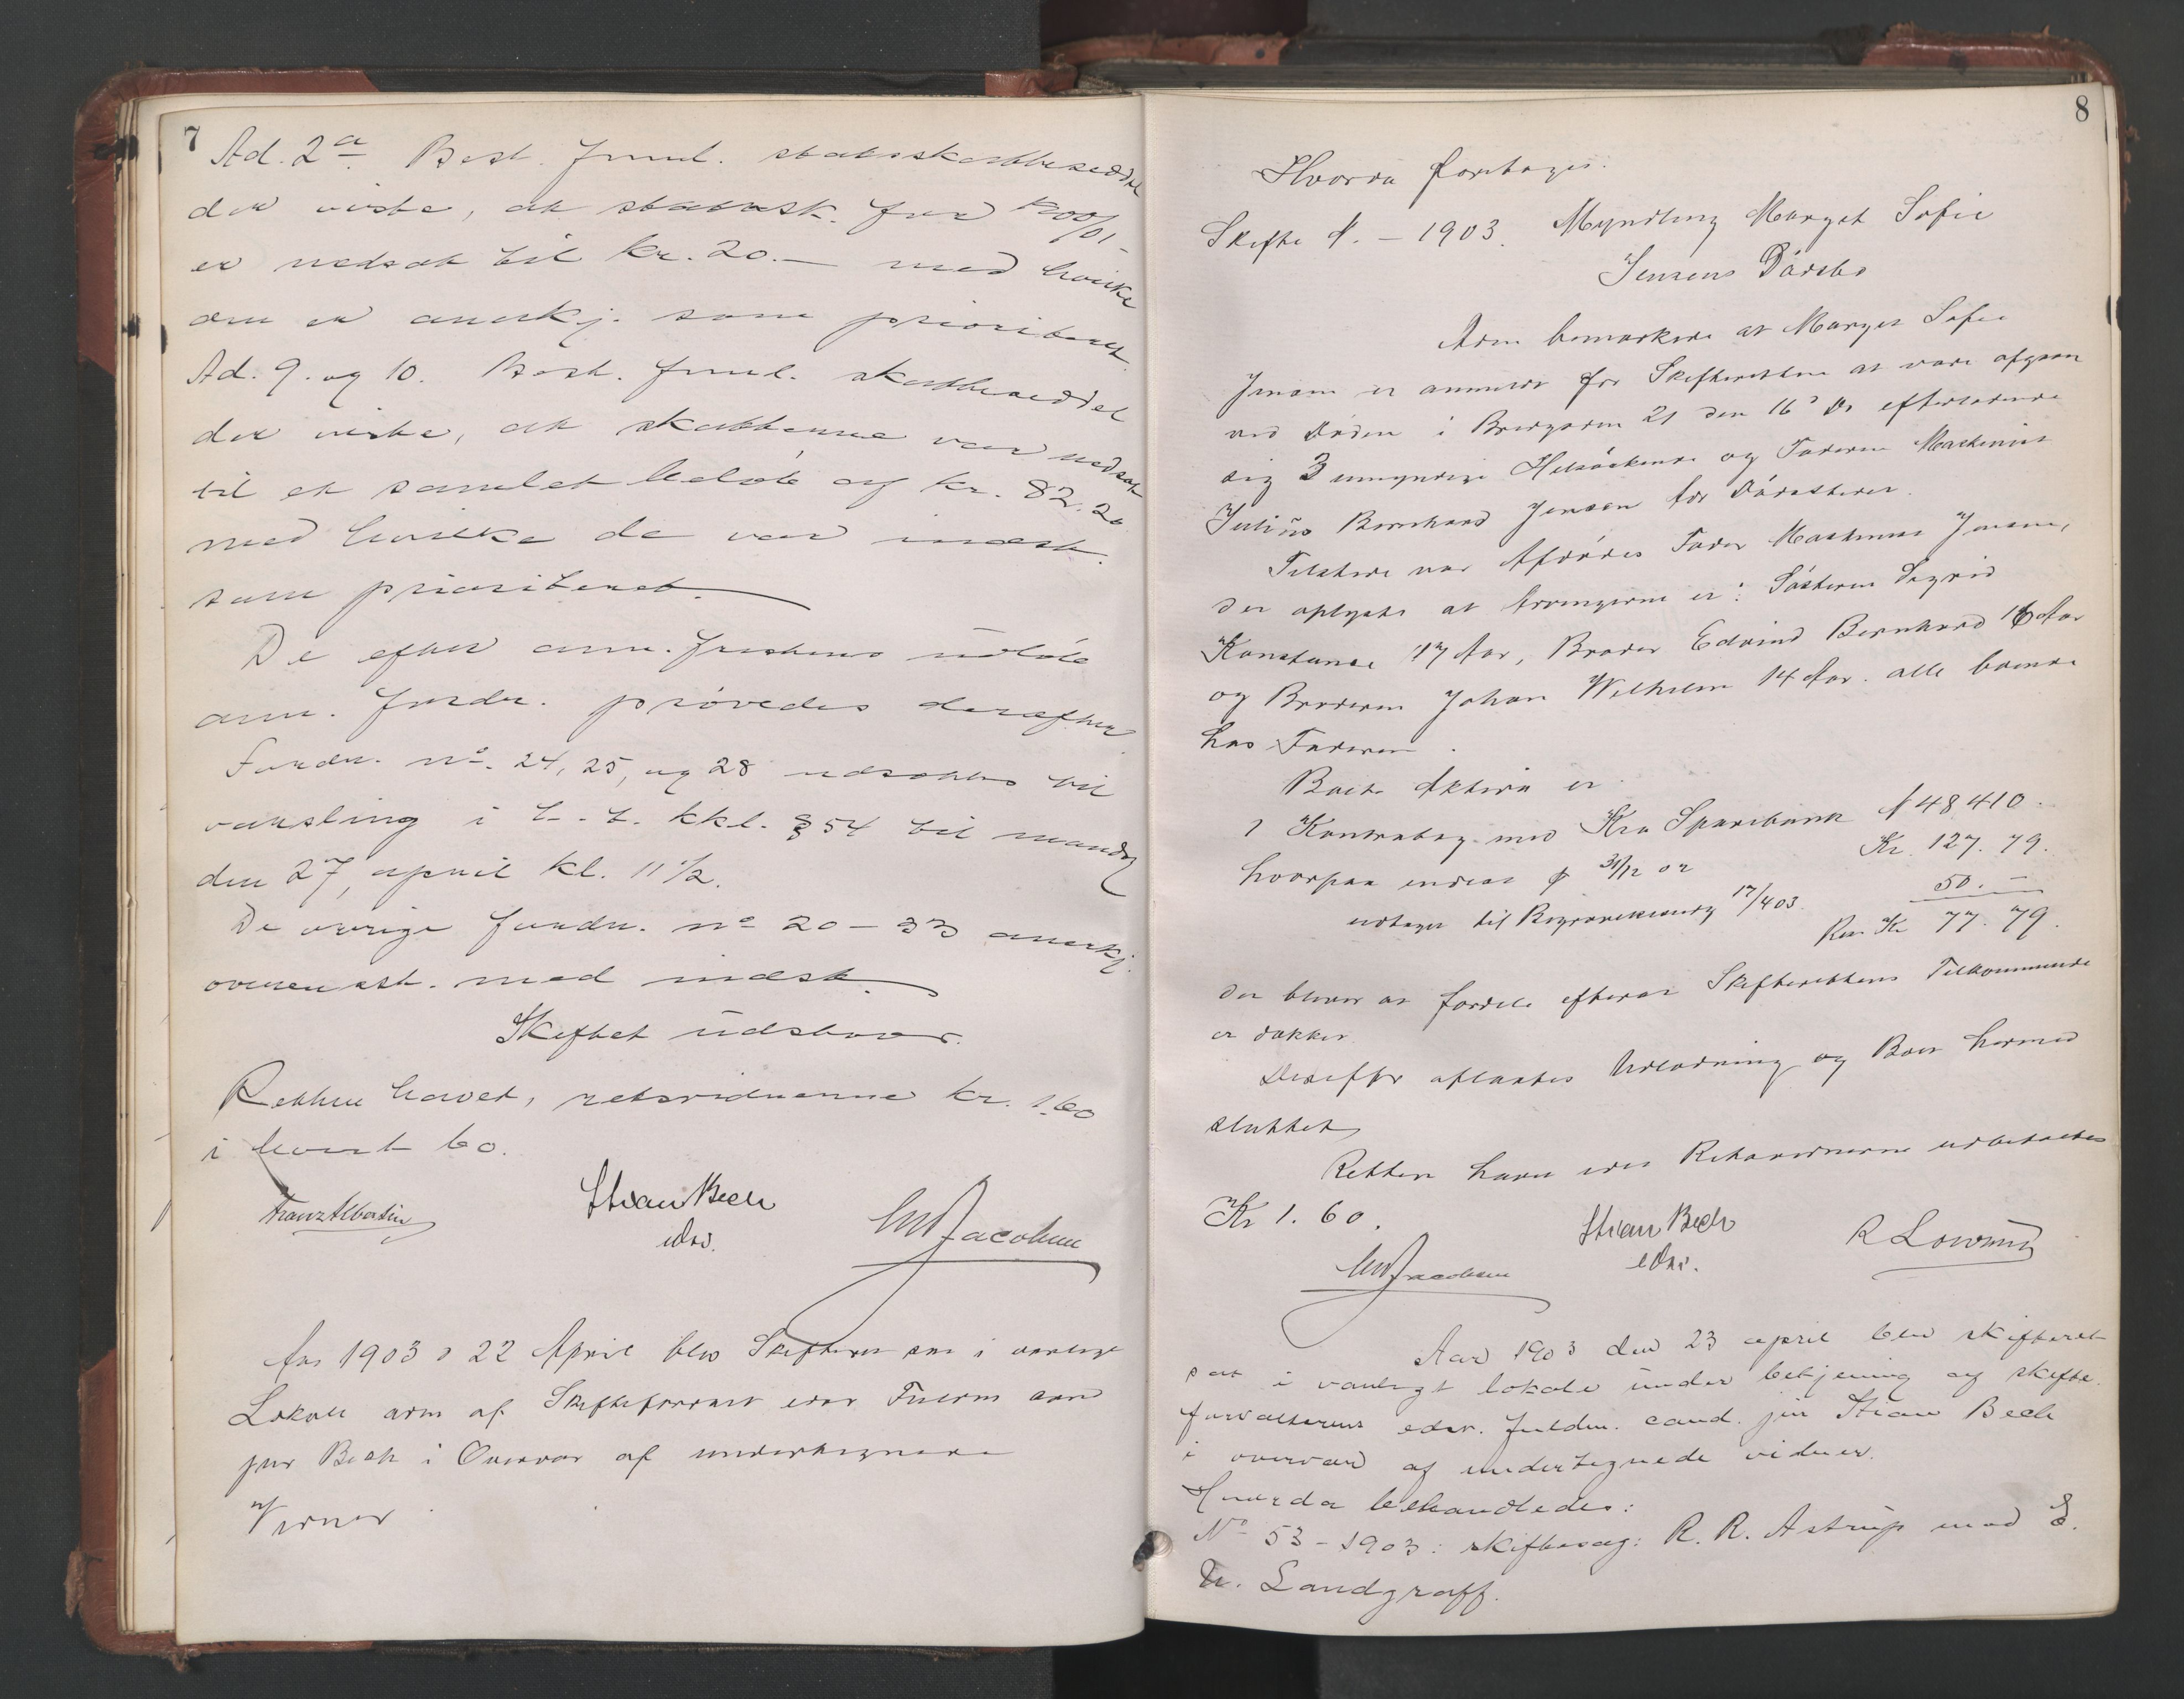 7
Ad. 2a Best. freml. statsskatteseddel
der viste, at statssk. for 1900/01
er nedsat til kr. 20.— med hvilke
den er anerkj. som prioriteret.
Ad. 9. og 10. Best. freml. skatteseddel
der viste, at skatterne var nedsat
til et samlet beløb af kr. 82.20
med hvilke de var indst.
som prioriteret.
De efter anm. fristens udløb
anm. fordr. prøvedes derefter
Fordr. no. 24, 25, og 28 udsattes til
varsling i h. t. kkl. § 54 til mandag
den 27, april kl. 11 1/2.
De øvrige fordr. no 20 – 33 anerkj.
overensst. med indst.
Skiftet udstaar.
Retten hævet, retsvidnerne kr. 1.60
i kost 60.
Franz Albertin Stian Bech CW Jacobsen
edsv.
Aar 1903 d 22 April blev Skifteret sat i vanligt
Lokale adm af Skifteforvalt edsv Fuldm cand
jur Bech i Overvær af undertegnede
Vidner
8
Hvorda foretages:
Skifte A. – 1903. Myndling Margit Sofie
Jensens Dødsbo
Adm bemærkede at Margit Sofie
Jensen er anmeldt for Skifteretten at være afgaaet
ved Døden i 21 den 16 ds efterladende
sig 3 umyndige Helsøskende og Faderen Maskinist
Julius Bernhard Jensen for Dødsstedet.
Tilstede var Afdødes Fader Maskinist Jensen,
der oplyste at Arvingerne er: Søsteren Sigrid
Konstance 17 Aar, Broder Edvind Bernhard 16 Aar
og Broderen Johan Wilhelm 14 Aar. alle boende
hos Faderen.
Boets Aktiva er
1 Kontrabog med Kra Sparebank N 48410.
hvorpaa indest p 31/12 02 Kr. 127.79.
udtaget til Begravelsen 17/4 03. 50.—
Rest Kr 77.79.
der bliver at fordele efterat Skifterettens Tilkommende
er dækket.
Derefter afsluttes Udlodning og Boet hermed
sluttet
Retten hævet idet Retsvidnerne udbetaltes
Kr 1.60.
CW Jacobsen Stian Bech R Lowum
edsv.
Aar 1903 den 23 april blev skifteret
sat i vanligt lokale under betjening af skifte-
forvalterens edsv. fuldm. cand. jur Stian Bech
i overvær af undertegnede vidner.
Hvorda behandledes:
No 53 – 1903: skiftesag: R. R. Astrup mod E.
U. Landgraff.